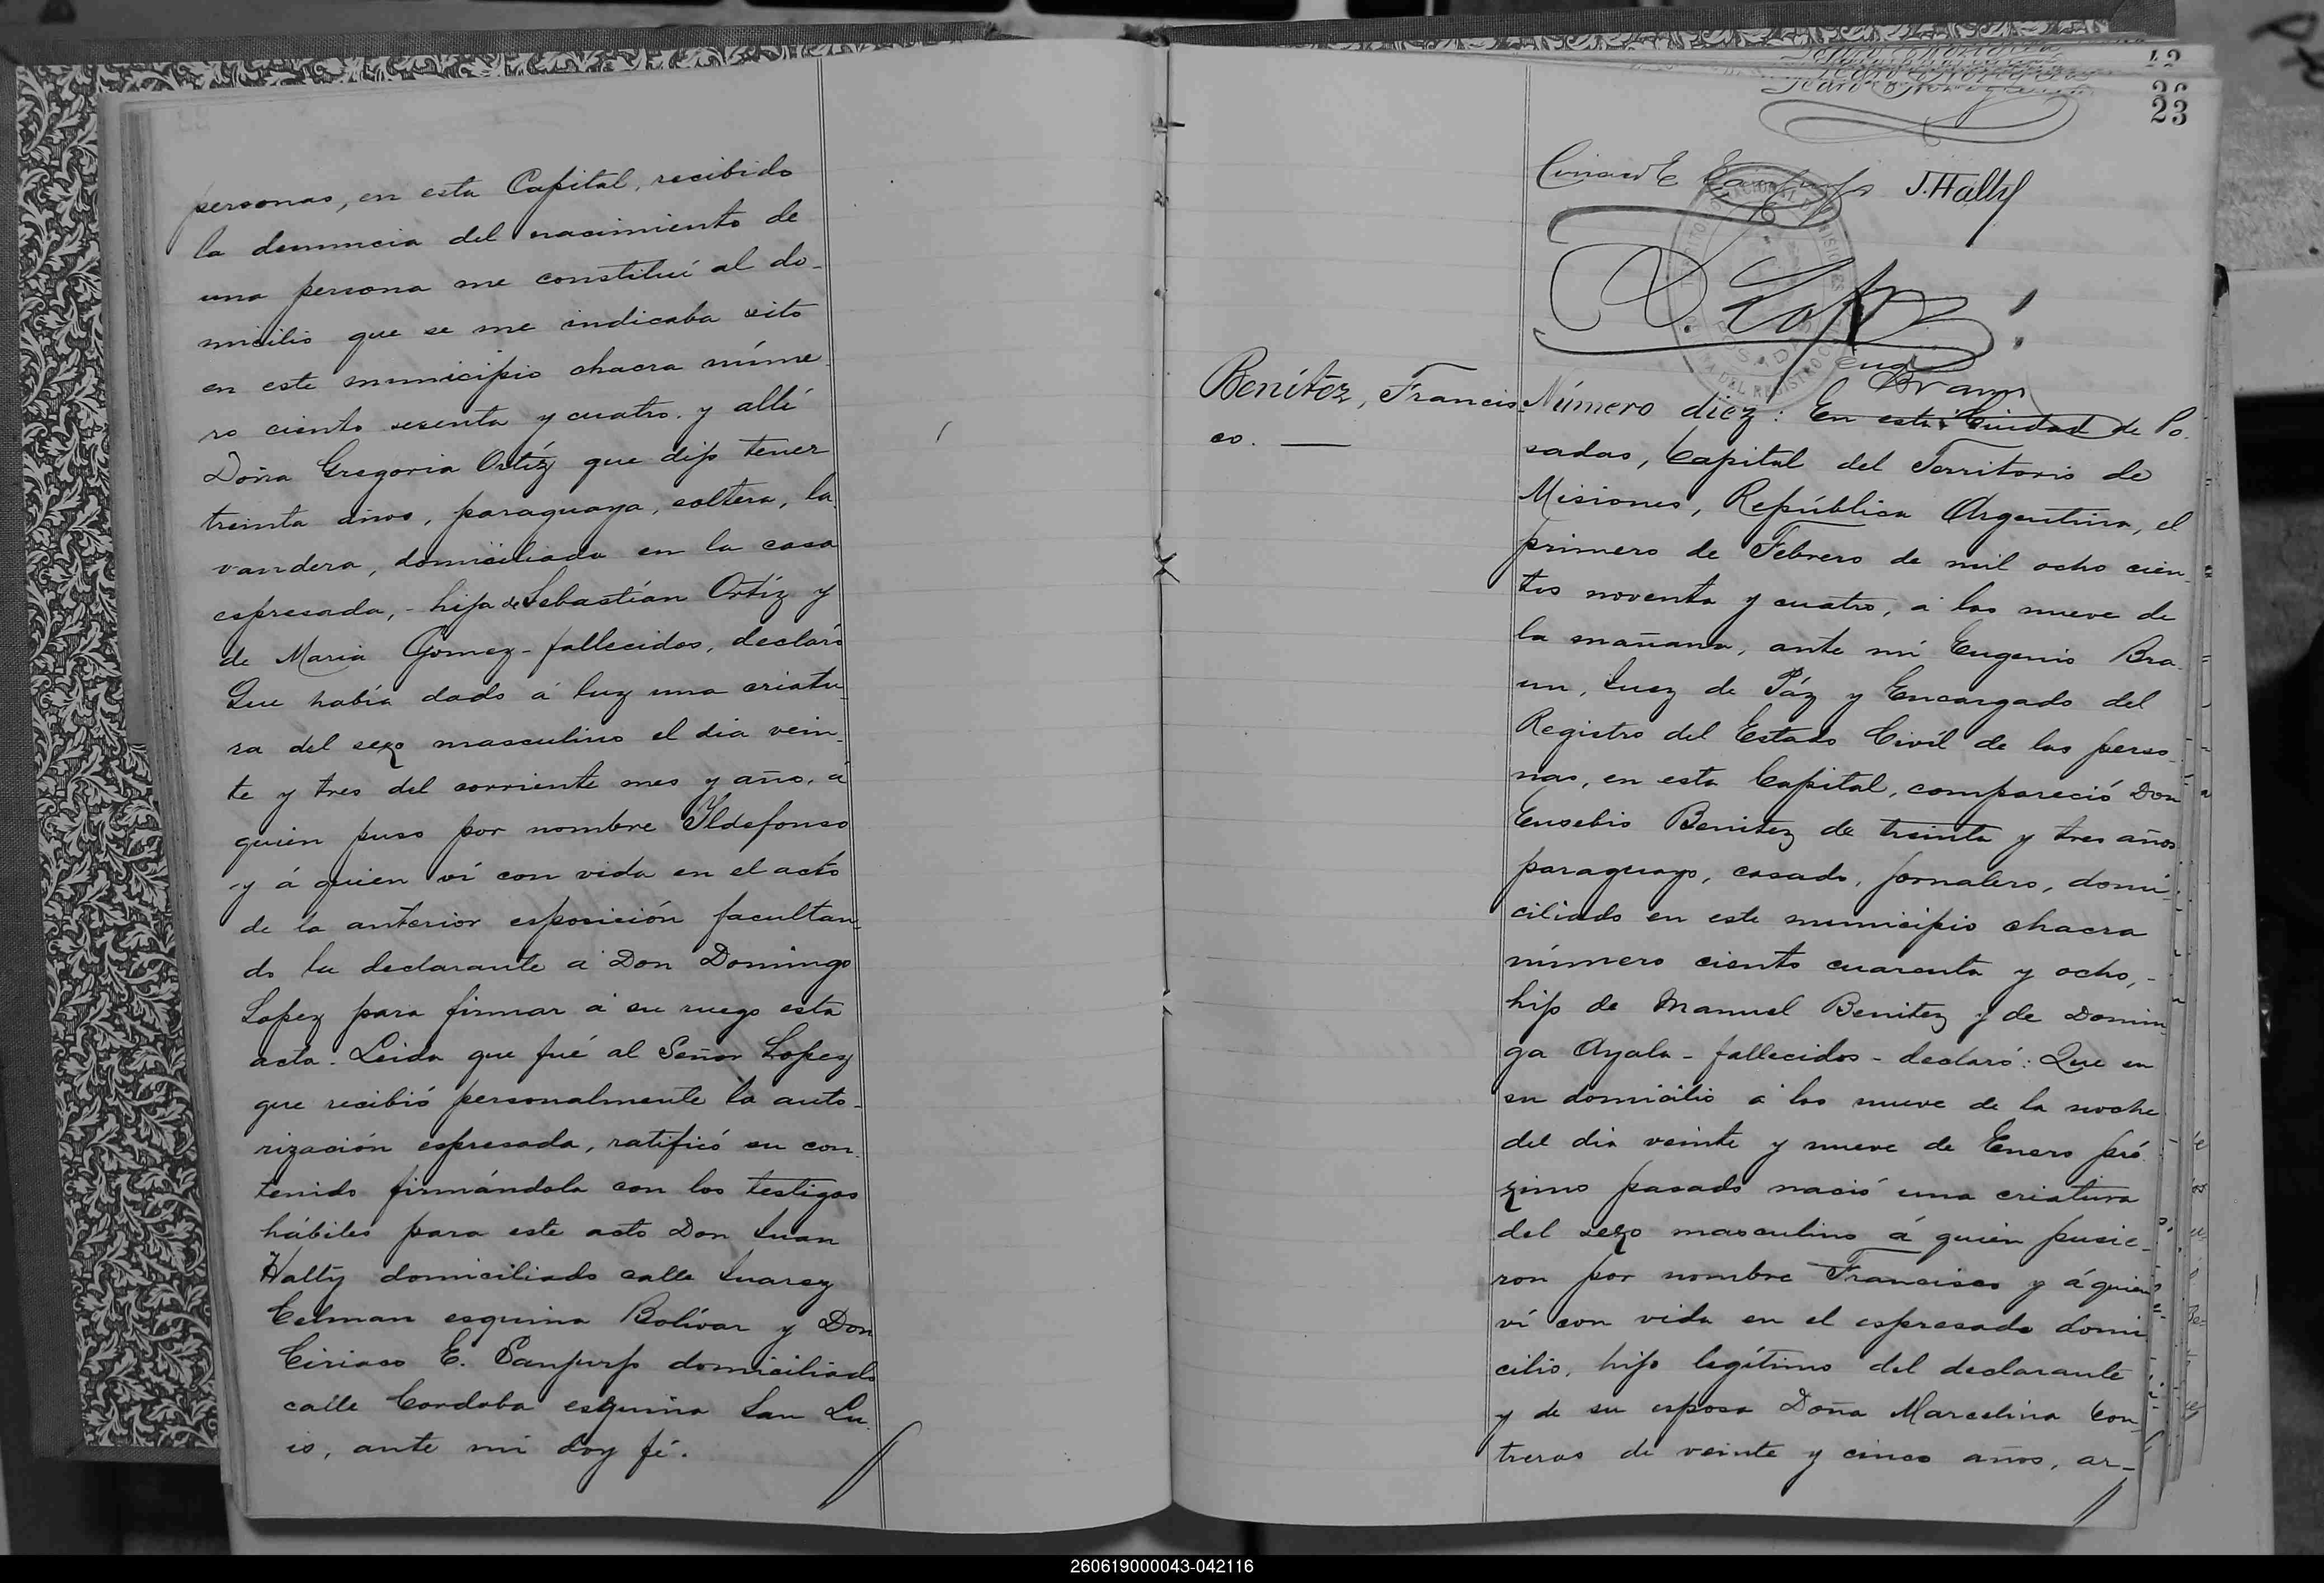 personas, en esta Capital, recibido
la denuncia del nacimiento de
una persona me constituí al do-
micilio que se me indicaba sito
en este municipio chacra núme-
ro ciento sesenta y cuatro. y allí
Doña Gregoria Ortíz que dijo tener
treinta años, paraguaya, soltera, la-
vandera, domiciliada en la casa
espresada, - hija de Sebastían Ortíz y
de Maria Gomez - fallecidos, declaró
Que había dado á luz una criatu-
ra del sexo masculino el dia vein-
te y tres del corriente mes y año, á
quien puso por nombre Yldefonso
y á quien ví con vida en el acto
de la anterior esposición facultan-
do la declarante a Don Domingo
Lopez para firmar a su ruego esta
acta. Leida que fué al Señor Lopez
que recibió personalmente la auto-
rización espresada, ratificó su con-
tenido firmándola con los testigos
hábiles para este acto Don Juan
Halty domiciliado calle Juarez
Celman esquina Bolívar y Don
Ciriaco E. domiciliado
calle Cordoba esquina San Lu-
is, ante mi doy fé.
23
J. Halty
D. Lopez
Eug Braun
Benítez, Francis-
co. —
Número diez: En esta Ciudad de Po-
sadas, Capital del Territorio de
Misiones, República Argentina, el
primero de Febrero de mil ocho cien-
tos noventa y cuatro, á las nueve de
la mañana, ante mi Eugenio Bra-
un, Juez de Páz y Encargado del
Registro del Estado Civíl de las perso-
nas, en esta Capital, compareció Don
Eusebio Benitez de treinta y tres años
paraguayo, casado, jornalero, domi-
ciliado en este municipio chacra
número ciento cuarenta y ocho, -
hijo de Manuel Benitez y de Domin-
ga Ayala - fallecidos - declaró: Que en
su domicilio á las nueve de la noche
del dia veinte y nueve de Enero pró-
ximo pasado nació una criatura
del sexo masculino á quien pusie-
ron por nombre Francisco y á quien
ví con vida en el espresado domi-
cilio, hijo legítimo del declarante
y de su esposa Doña Marcelina Con-
treras de veinte y cinco años, ar-
260619000043-042116